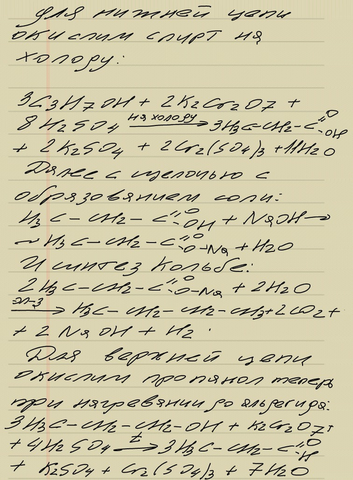 Для нижней цепи
окислим спирт на
холоду:
3C3H7OH + 2K2Cr2O7 +
8H2SO4 на холоду → 3H3C-CH2-C=O-OH
+ 2K2SO4 + 2Cr2(SO4)3 + 11H2O
Далее с щелочью с
образованием соли:
H3C-CH2-C=O-OH + NaOH →
~ H3C-CH2-C=O-O-Na + H2O
И синтез Кольбе:
2H3C-CH2-C=O-O-Na + 2H2O
эл-з → H3C-CH2-CH2-CH3+2CO2+
+ 2NaOH + H2.
Для верхней цепи
окислим пропанол теперь
при нагревании до альдегида:
3H3C-CH2-CH2-OH + K2Cr2O7+
+4H2SO4 t → 3H3C-CH2-C=O-H
+ K2SO4 + Cr2(SO4)3 + 7H2O